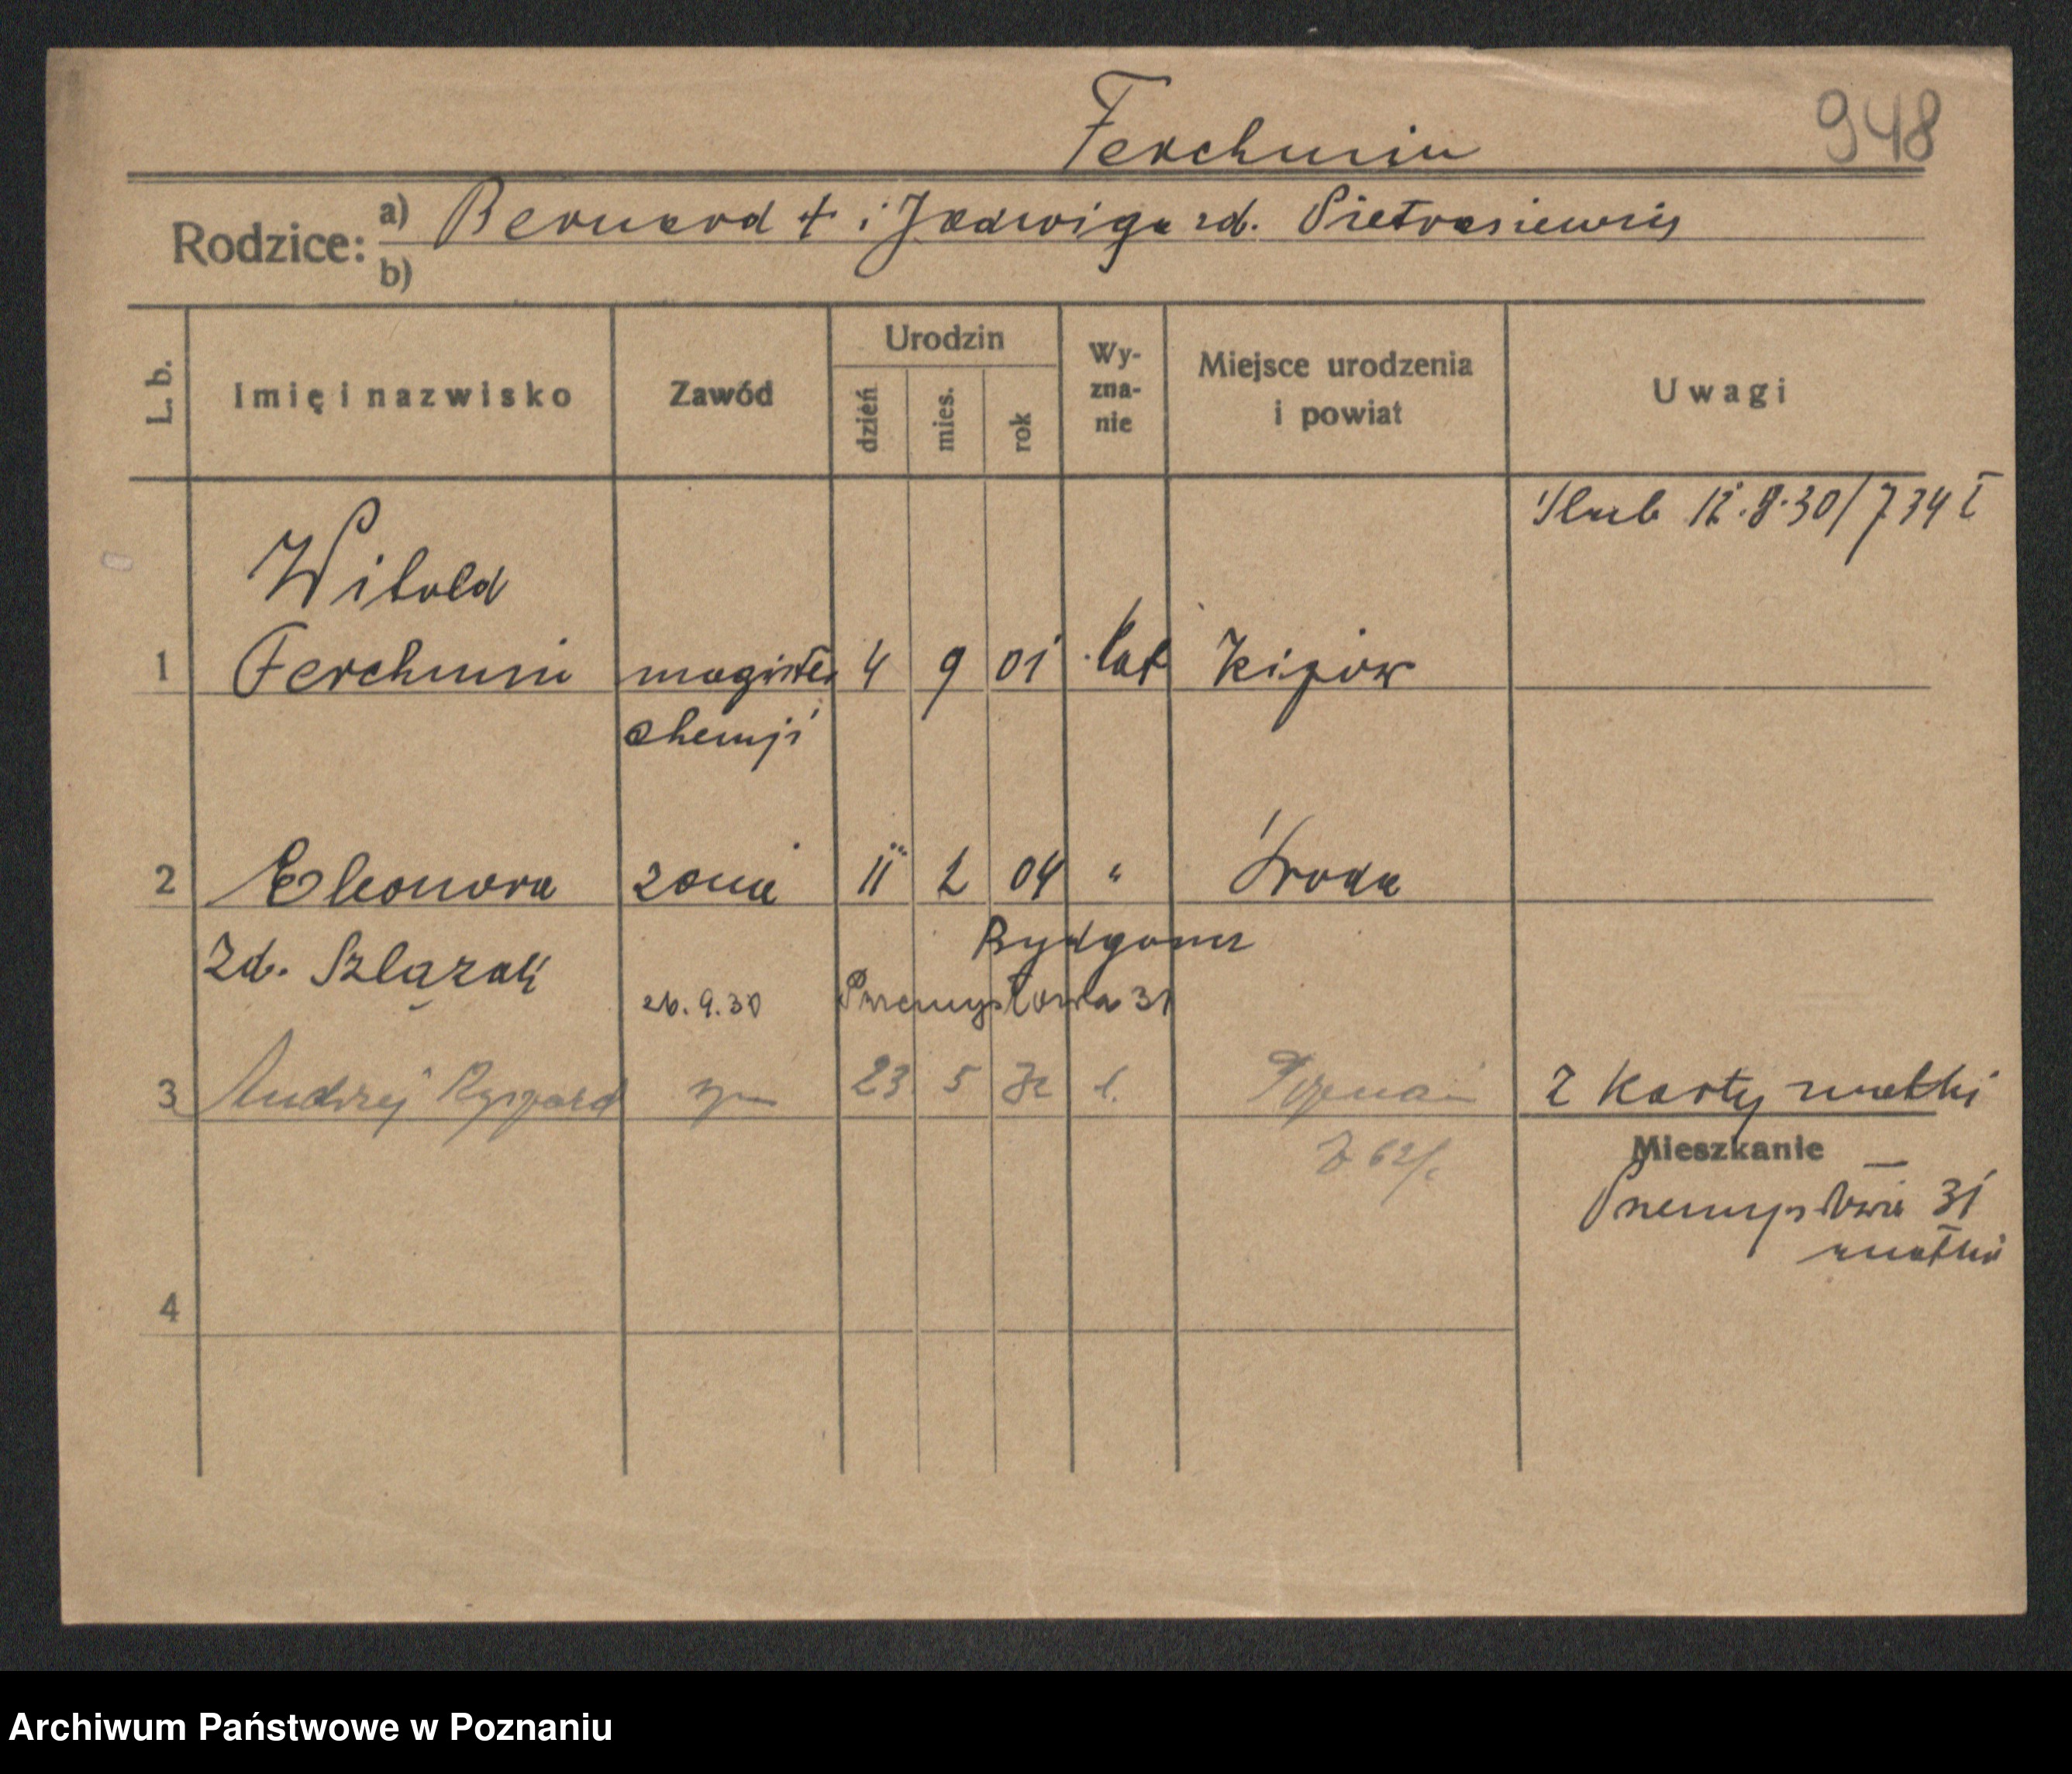 Ferchmin
948
Rodzice: a) Bernard + i Jadwiga zd. Pietrasiewicz
b)
L. b. Imię i nazwisko Zawód Urodzin dzień mies. rok Wy-zna-nie Miejsce urodzenia i powiat Uwagi
Ślub 12.8.30/734 I
Witold
1 Ferchmin magister 4 9 01 kat Kijów
chemji
2 Eleonora żona 11 2 04 " Środa
Bydgoszcz
Zd. Szlązak
26.9.30 Przemysłowa 31
3 Andrzej Ryszard syn 23 5 32 k. Poznań Z karty matki
Mieszkanie
Przemysłowa 31
matka
4
Archiwum Państwowe w Poznaniu